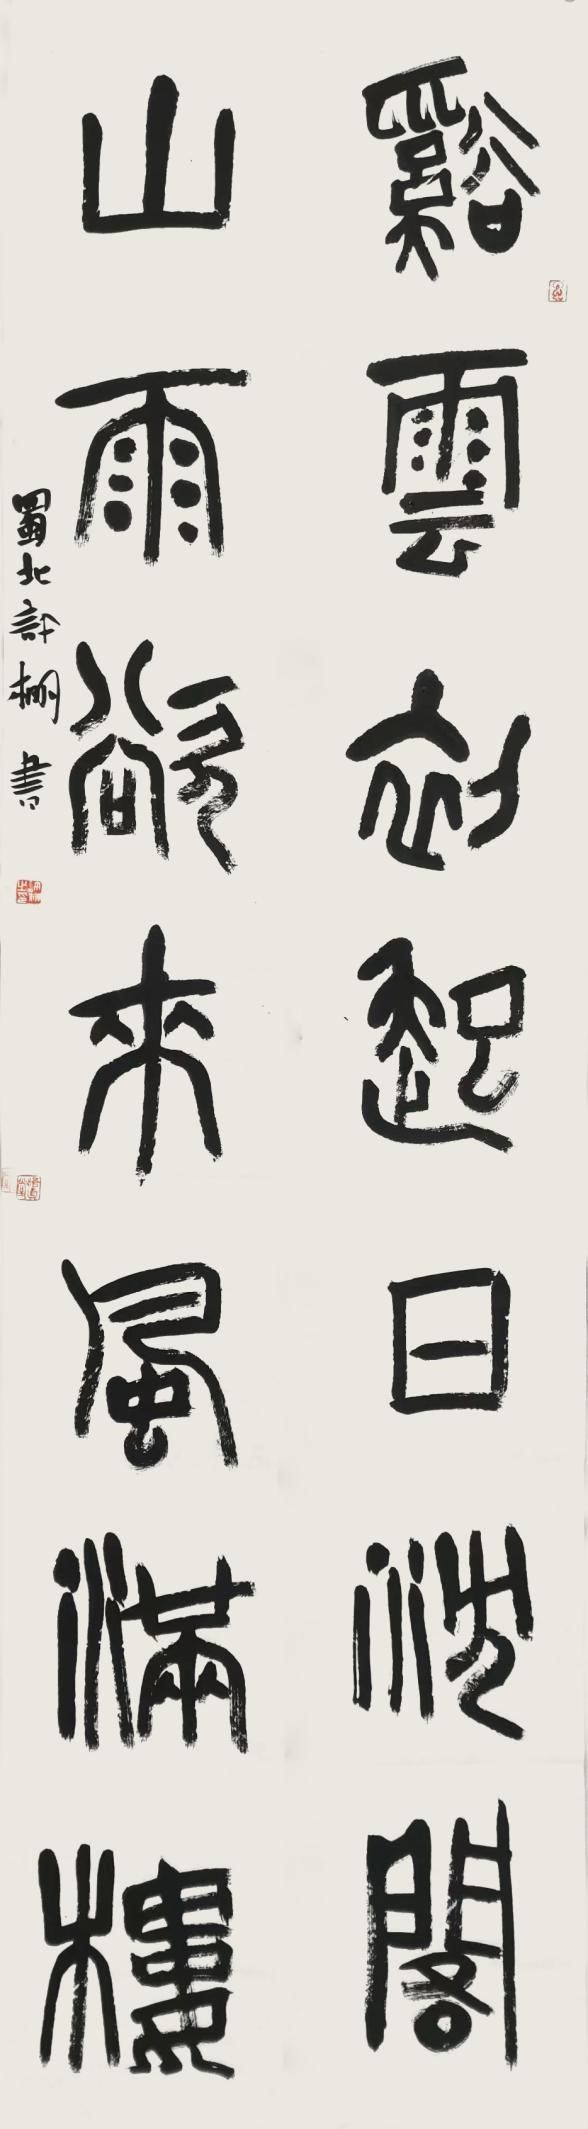 谿雲初起日沈閣
山雨欲來風滿樓
蜀北許書